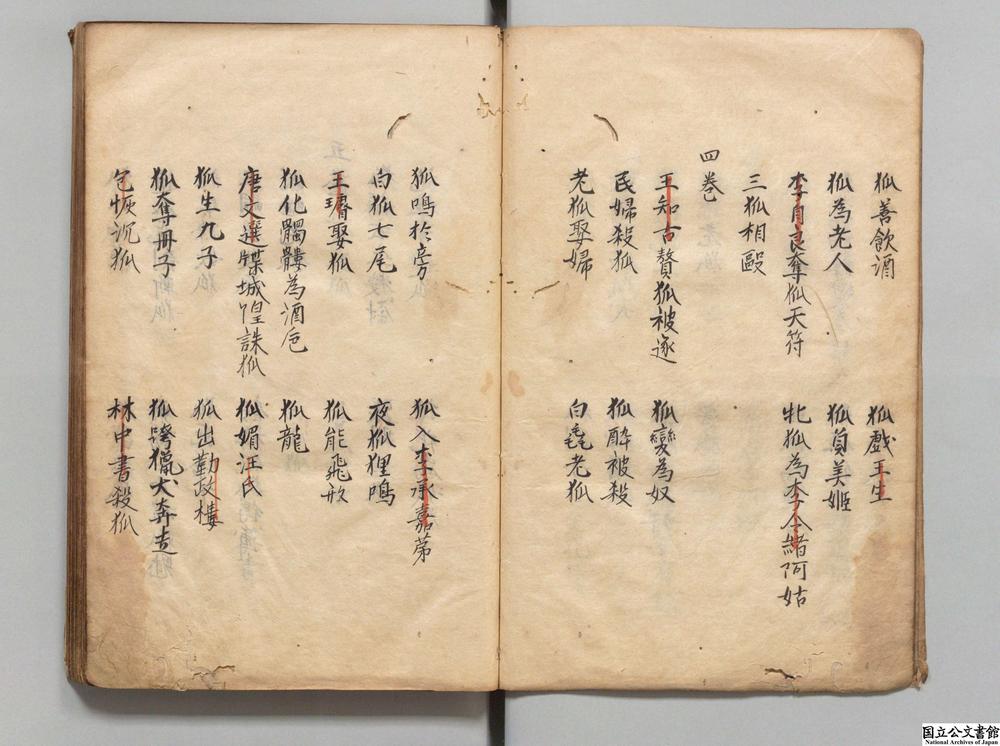 狐善飲酒 狐戯王生
狐為老人 狐負美姬
李自良奪狐天符 牝狐為李令緒阿姑
三狐相毆
四巻
王知古贅狐被逐 狐變為奴
民婦殺狐 狐醉被殺
老狐娶婦 白毳老狐
狐鳴於旁 狐入李承嘉苐
白狐七尾 夜狐狸鳴
王璿娶狐 狐能飛形
狐化髑髏為酒卮 狐龍
唐文選牒城隍誅狐 狐媚汪氏
狐生九子 狐出勤政樓
狐奪冊子 狐誇獵犬奔走
包恢沉狐 林中書殺狐
国立公文書館
National Archives of Japan